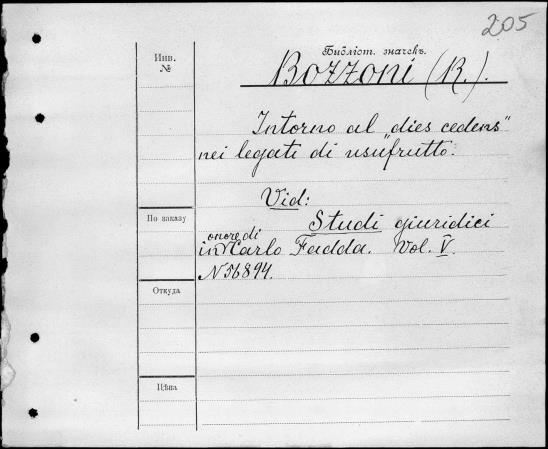 205
Библіот. значекъ.
Инв.
№
Bozzoni (R.).
Intorno al „dies cedens"
nei legati di usufrutto.
Vid:
По заказу
Studi giuridici
onore di
in Carlo Fadda. Vol. V.
N 56894.
Откуда
Цѣна